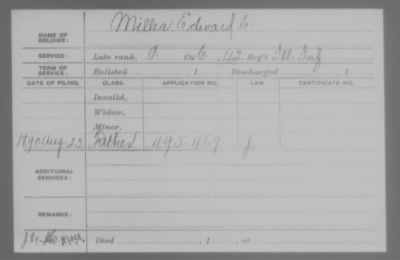 NAME OF SOLDIER: Miller Edward C.
SERVICE: Late rank, P. Co. G, 142 Reg't Ill. Inf.
TERM OF SERVICE: Enlisted , 1 Discharged , 1
DATE OF FILING. CLASS. APPLICATION NO. LAW. CERTIFICATE NO.
Invalid,
Widow,
Minor,
1890 Aug 23 Father 495.469 J.
ADDITIONAL SERVICES:
REMARKS:
Died , 1 , at